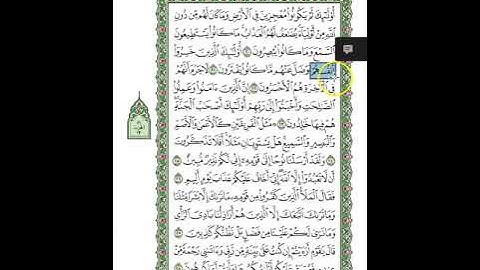 أُوْلَٰٓئِكَ لَمْ يَكُونُوا۟ مُعْجِزِينَ فِى ٱلْأَرْضِ وَمَا كَانَ لَهُم مِّن دُونِ
ٱللَّهِ مِنْ أَوْلِيَآءَ يُضَٰعَفُ لَهُمُ ٱلْعَذَابُ مَا كَانُوا۟ يَسْتَطِيعُونَ
ٱلسَّمْعَ وَمَا كَانُوا۟ يُبْصِرُونَ ٢٠ أُوْلَٰٓئِكَ ٱلَّذِينَ خَسِرُوٓا۟
أَنفُسَهُمْ وَضَلَّ عَنْهُم مَّا كَانُوا۟ يَفْتَرُونَ ٢١ لَا جَرَمَ أَنَّهُمْ
فِى ٱلْءَاخِرَةِ هُمُ ٱلْأَخْسَرُونَ ٢٢ إِنَّ ٱلَّذِينَ ءَامَنُوا۟ وَعَمِلُوا۟
ٱلصَّٰلِحَٰتِ وَأَخْبَتُوٓا۟ إِلَىٰ رَبِّهِمْ أُوْلَٰٓئِكَ أَصْحَٰبُ ٱلْجَنَّةِ
هُمْ فِيهَا خَٰلِدُونَ ٢٣ مَثَلُ ٱلْفَرِيقَيْنِ كَٱلْأَعْمَىٰ وَٱلْأَصَمِّ
وَٱلْبَصِيرِ وَٱلسَّمِيعِ هَلْ يَسْتَوِيَانِ مَثَلًا أَفَلَا تَذَكَّرُونَ
٢٤ وَلَقَدْ أَرْسَلْنَا نُوحًا إِلَىٰ قَوْمِهِۦٓ إِنِّى لَكُمْ نَذِيرٌ مُّبِينٌ ٢٥
أَن لَّا تَعْبُدُوٓا۟ إِلَّا ٱللَّهَ إِنِّىٓ أَخَافُ عَلَيْكُمْ عَذَابَ يَوْمٍ أَلِيمٍ ٢٦
فَقَالَ ٱلْمَلَأُ ٱلَّذِينَ كَفَرُوا۟ مِن قَوْمِهِۦ مَا نَرَىٰكَ إِلَّا بَشَرًا مِّثْلَنَا
وَمَا نَرَىٰكَ ٱتَّبَعَكَ إِلَّا ٱلَّذِينَ هُمْ أَرَاذِلُنَا بَادِىَ ٱلرَّأْىِ
وَمَا نَرَىٰ لَكُمْ عَلَيْنَا مِن فَضْلٍۭ بَلْ نَظُنُّكُمْ كَٰذِبِينَ ٢٧
قَالَ يَٰقَوْمِ أَرَءَيْتُمْ إِن كُنتُ عَلَىٰ بَيِّنَةٍ مِّن رَّبِّى وَءَاتَىٰنِى رَحْمَةً مِّنْ